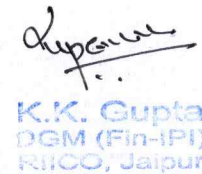 K.K. Gupta
DGM (Fin-IPI)
RIICO, Jaipur